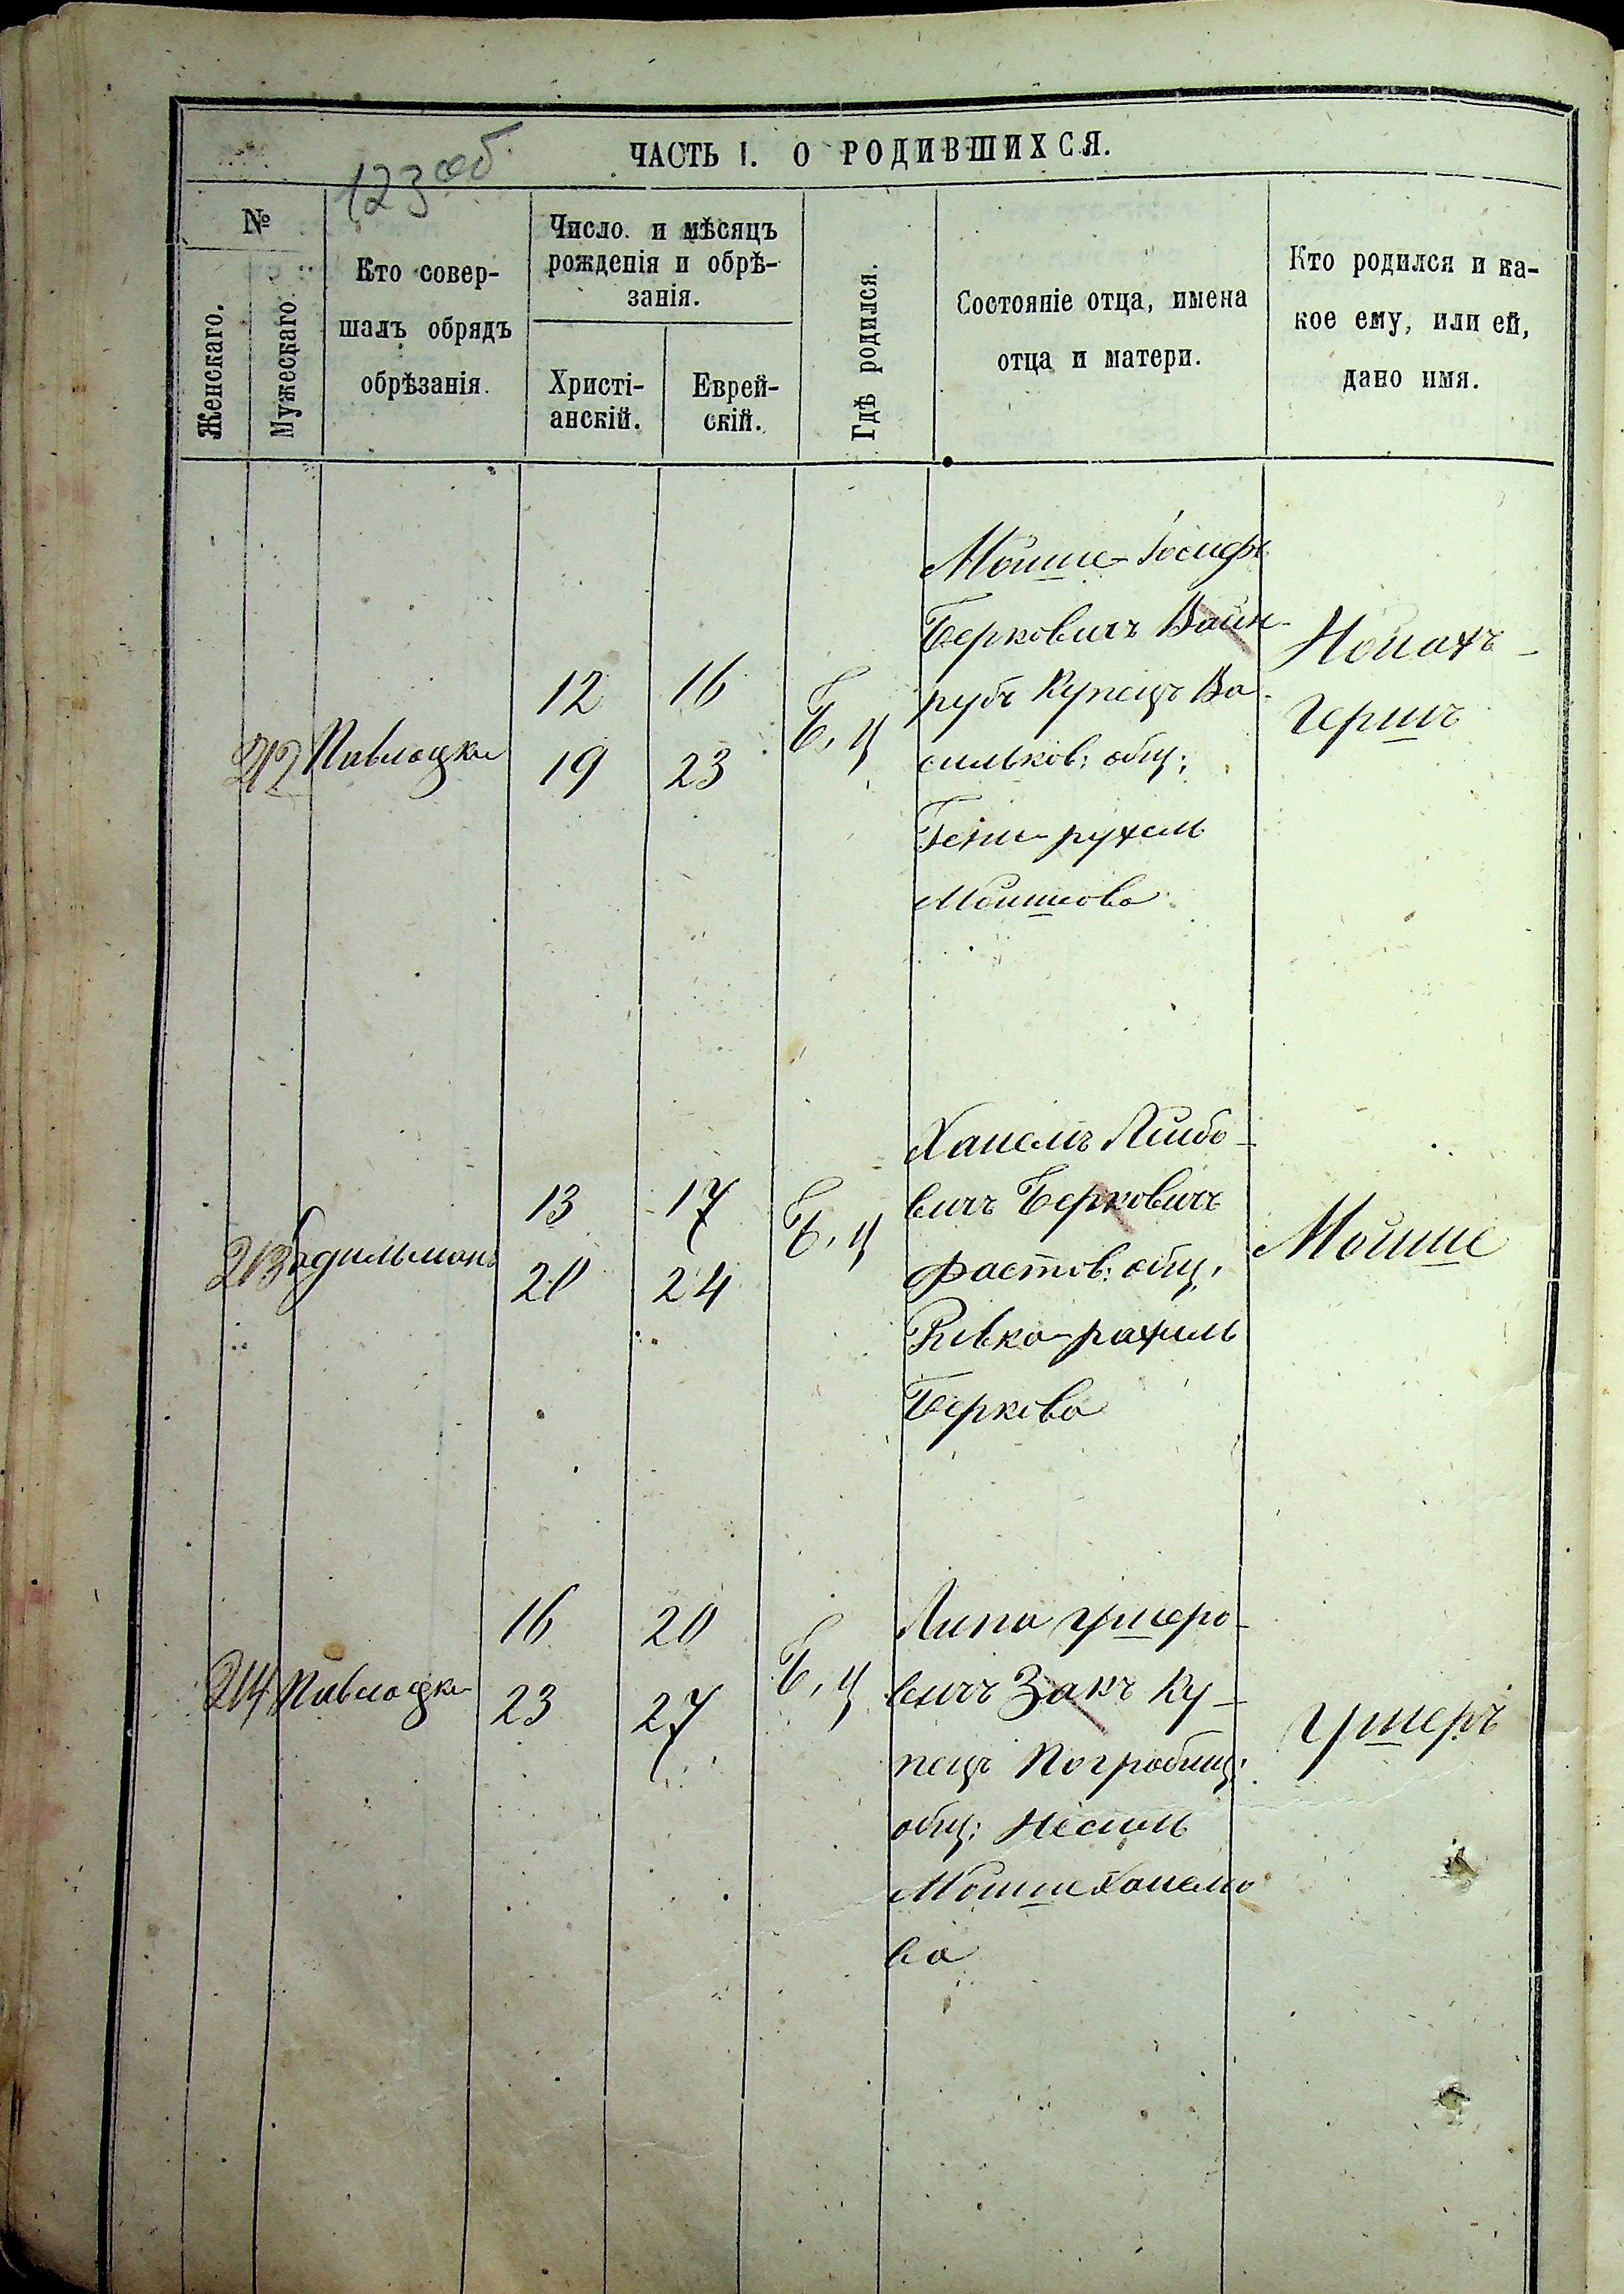 123 об
ЧАСТЬ I. О РОДИВШИХСЯ.
№
Женскаго.
Мужескаго.
Кто совер-
шалъ обрядъ
обрѣзанія.
Число и мѣсяцъ
рожденія и обрѣ-
занія.
Христі-
анскій.
Еврей-
скій.
Гдѣ родился.
Состояніе отца, имена
отца и матери.
Кто родился и ка-
кое ему, или ей,
дано имя.
212
Павлоцки
12
19
16
23
Б, Ц
Мойше-Іосифъ
Берковичъ Вайн-
рубъ Купецъ Ва-
сильков: общ:
Гени-рухель
Мойшеова
Нойахъ-
Гершъ
213
13
20
17
24
Б, Ц
Хаимъ Лейбо-
вичъ Берковичъ
Фастов: общ:
Ривка-рахиль
Беркова
Мойше
214
Павлоцки
16
23
20
27
Б, Ц
Липа Ушеро-
вичъ Закъ Ку-
пецъ Погребищ:
общ:
МойшеХаимо
ва
Ушеръ